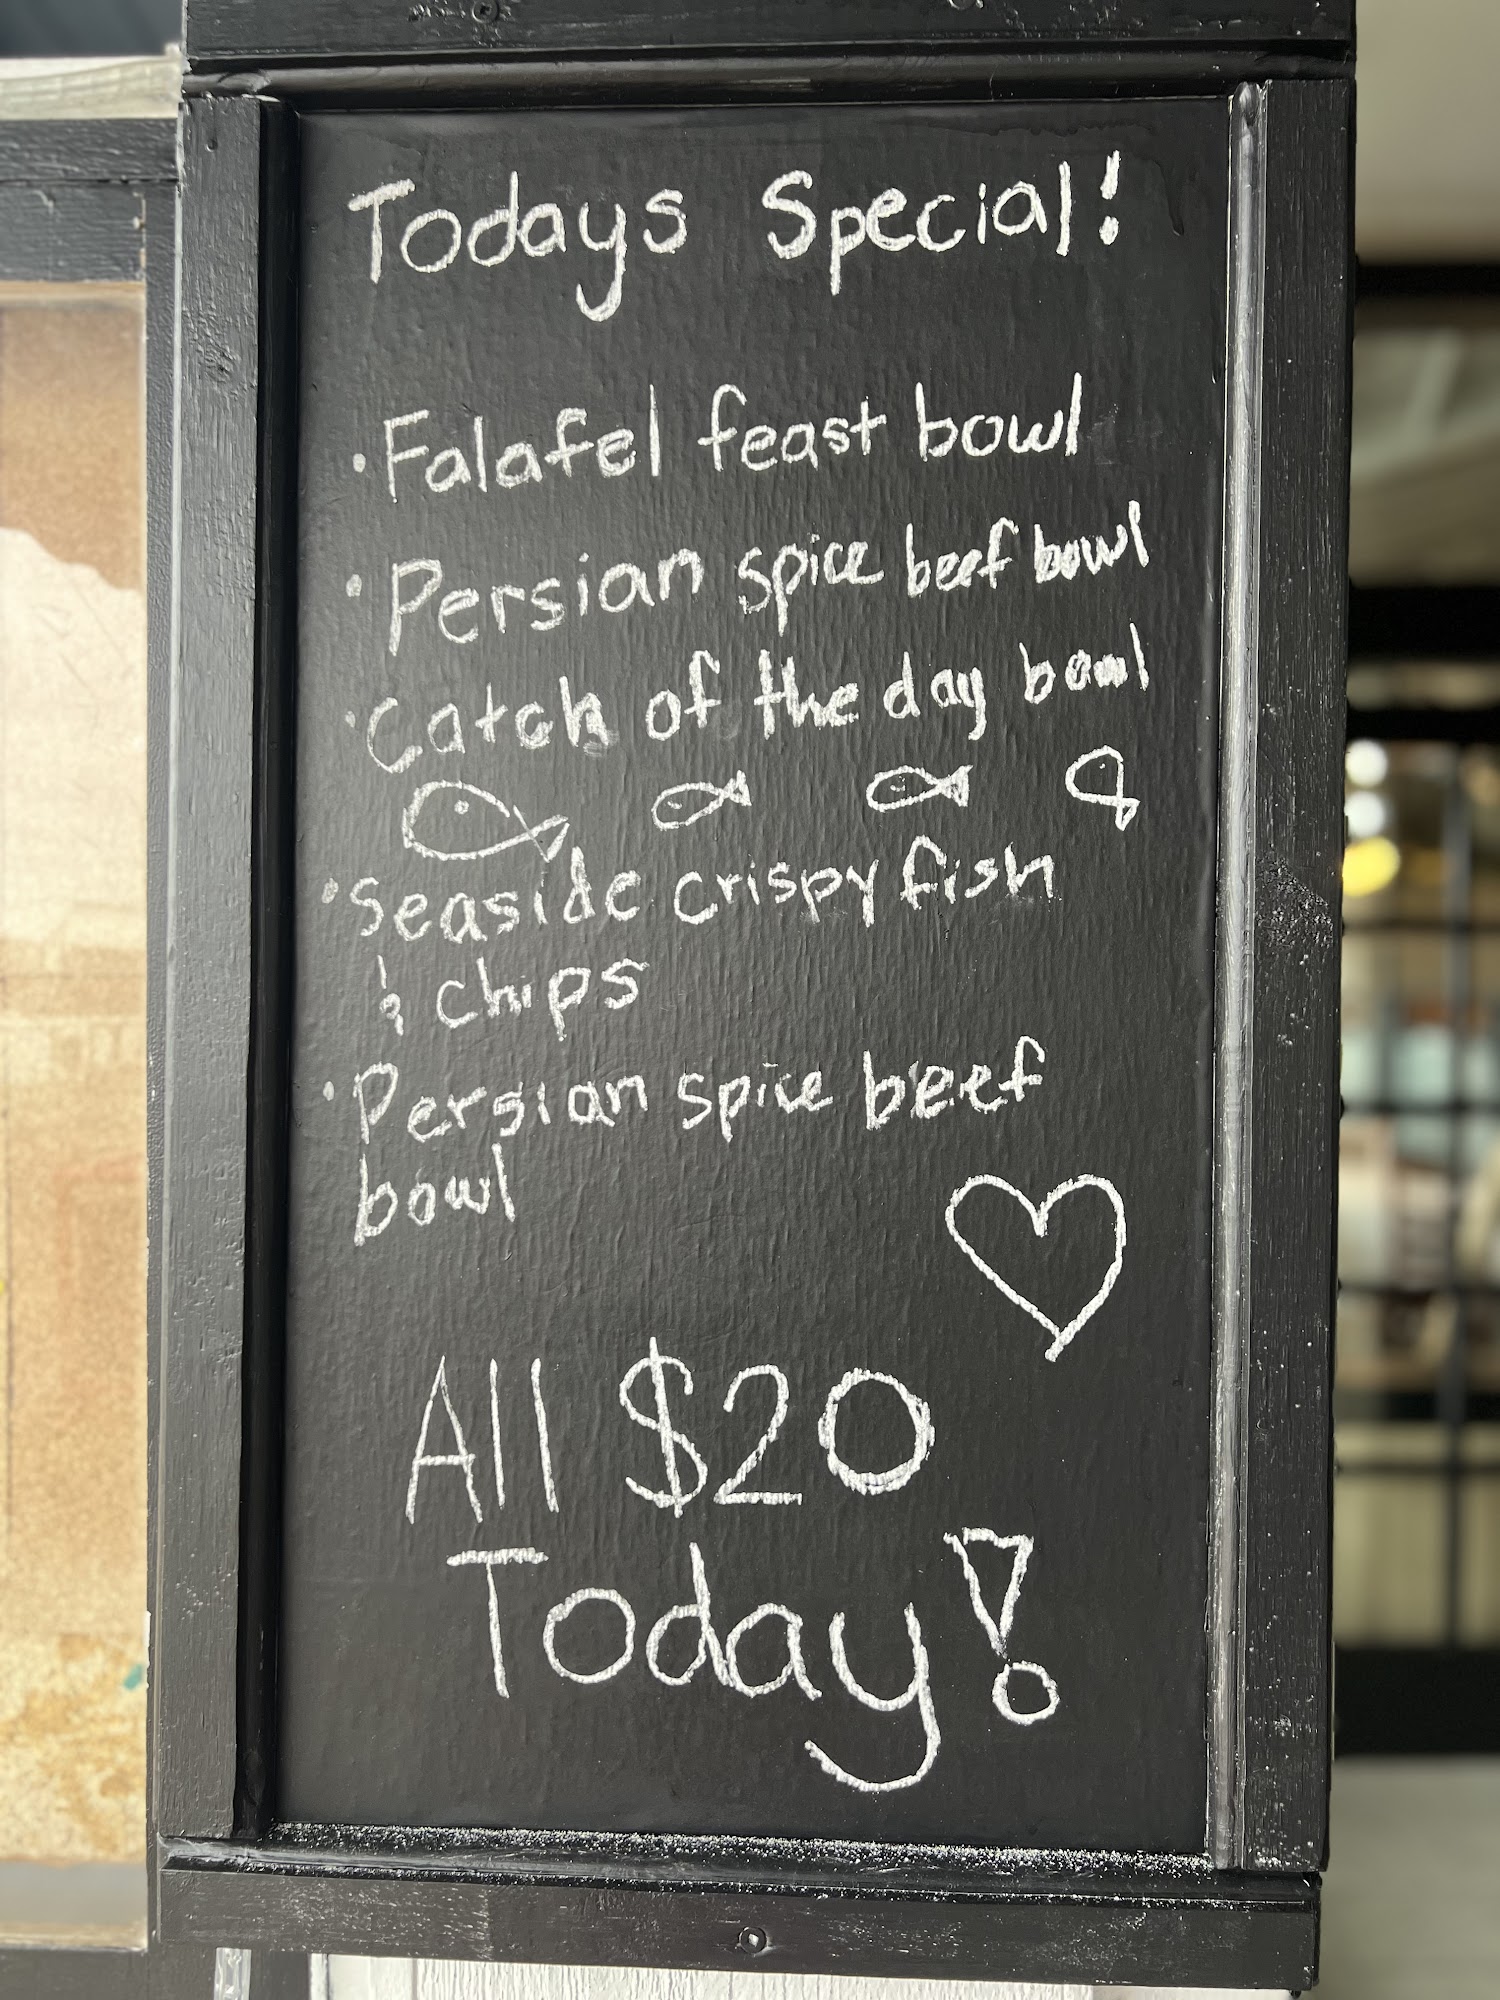 Todays Special!
· Falafel feast bowl
· Persian spice beef bowl
· Catch of the day bowl
· Seaside crispy fish
& chips
· Persian spice beef
bowl
All $20
Today!